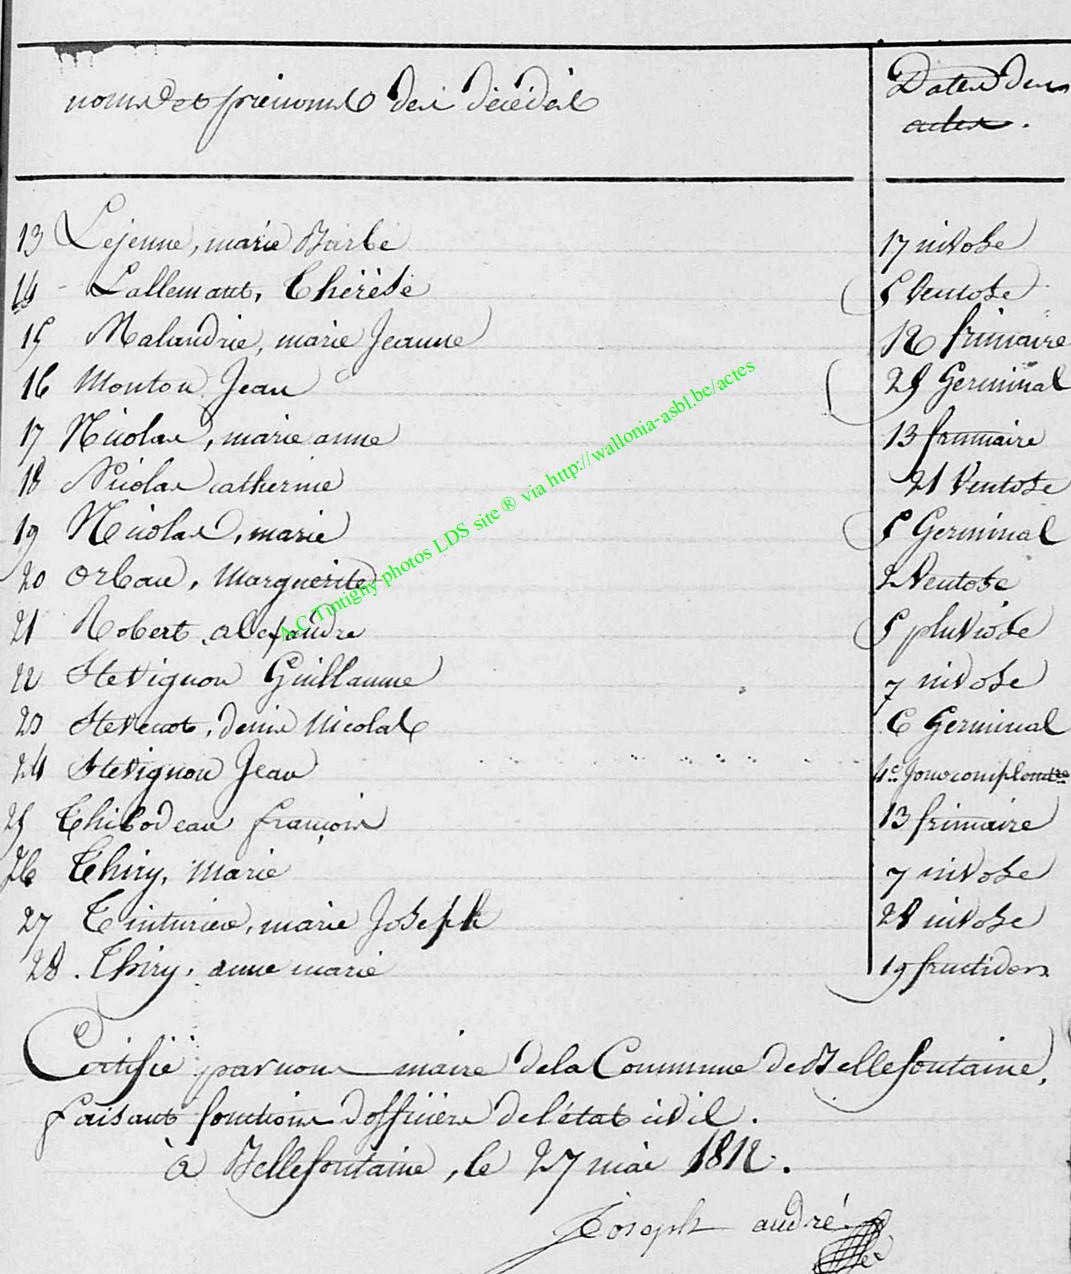 noms et prénoms des décédés
Dates des
actes.
13 Lejeune, marie Barbe 17 nivose
14 - Lallemant, Thérèse 5 Ventose
15 Malandrie, marie Jeanne 12 frimaire
16 Monton Jean 25 Germinal
17 Nicolas, marie anne 13 frimaire
18 Nicolas catherine 21 Ventose
19 Nicolas, marie 5 Germinal
20 Orban, Marguerite 2 Ventose
21 Robert alexandre 5 pluviose
22 Stevignon Guillaume 7 nivose
23 Stevenot, denis Nicolas 6 Germinal
24 Stevignon Jean 4e Jour complemtre
25 Thibodeau françois 13 frimaire
26 Thiry, Marie 7 nivose
27 Tinturier, marie Joseph 28 nivose
28. Thiry, anne marie 19 fructidor
Certifié par nous maire de la Commune de Bellefontaine,
faisant fonctions d'officier de l'état civil.
à Bellefontaine, le 27 mai 1812.
Joseph andré
A.C Tintigny photos LDS site ® via http://wallonia-asbl.be/actes